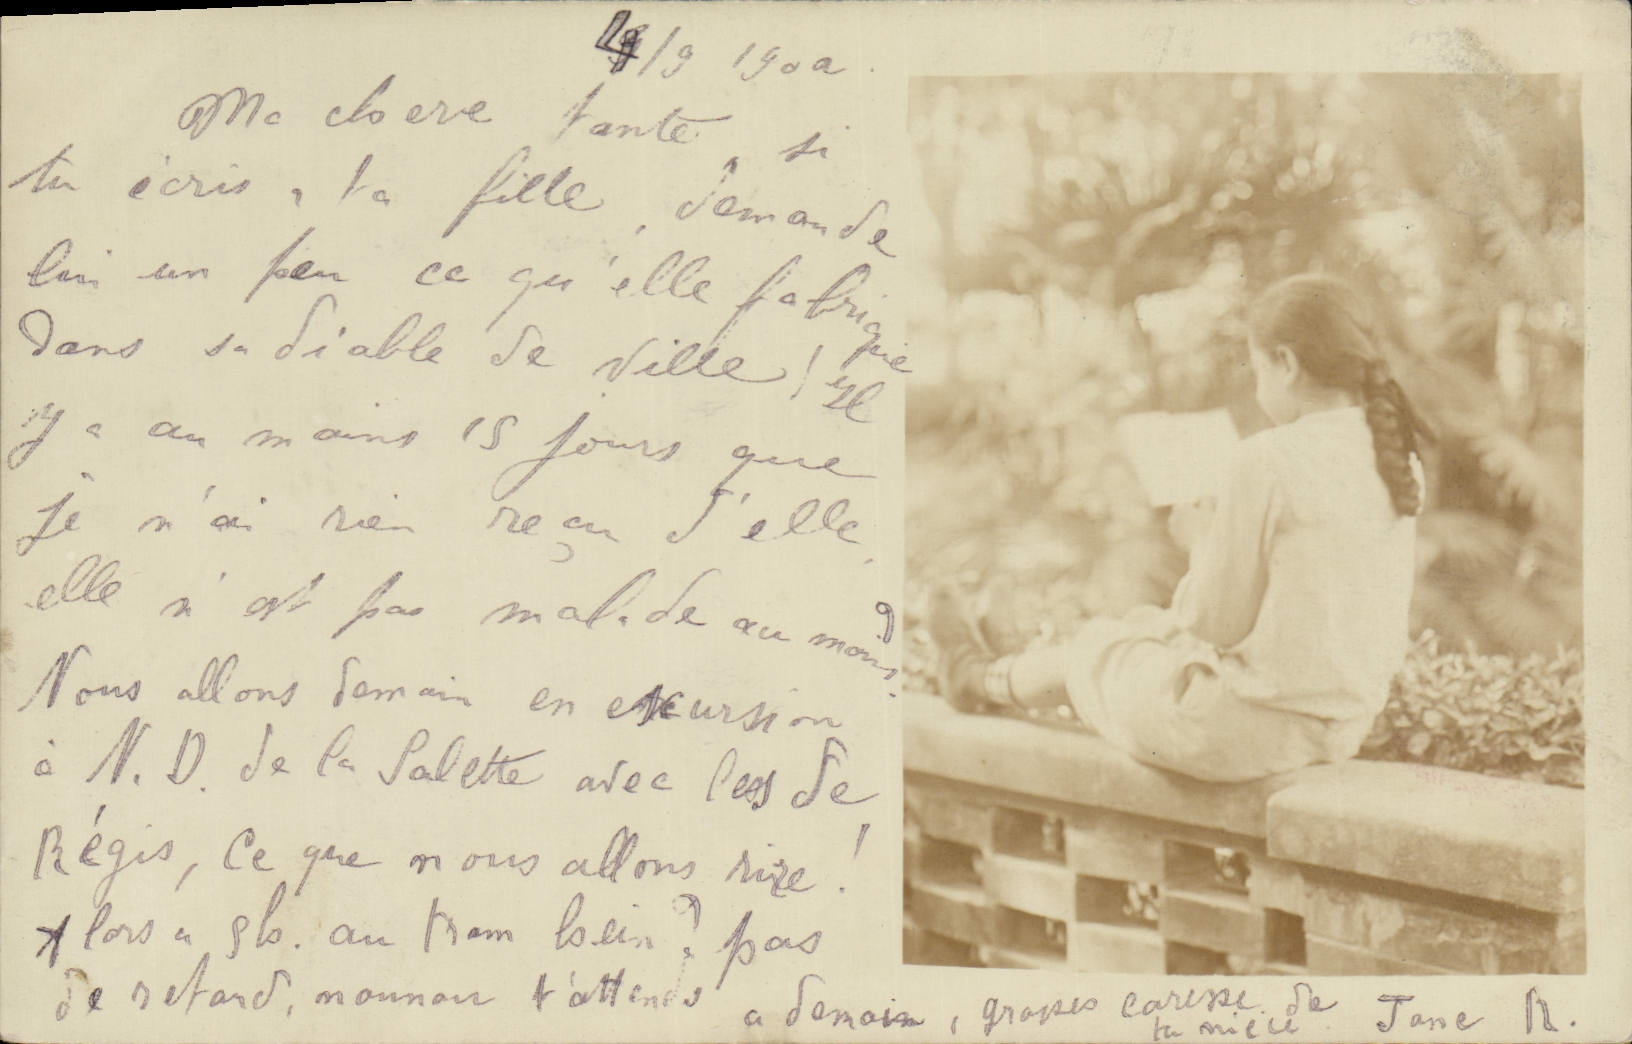 4/9 190a.
Ma chere tante, si
tu écris a ta fille, demande
lui un peu ce qu'elle fabrique
dans sa diable de ville! Il
y a au moins 15 jours que
je n'ai rien reçu d'elle,
elle n'est pas malade au moins?
Nous allons demain en excursion
à N. D. de la Salette avec les de
Régis, Ce que nous allons rire!
Alors a 5h. au tram hein? pas
de retard, nounou t'attends a demain, grosses caresse de
ta nièce Jane R.